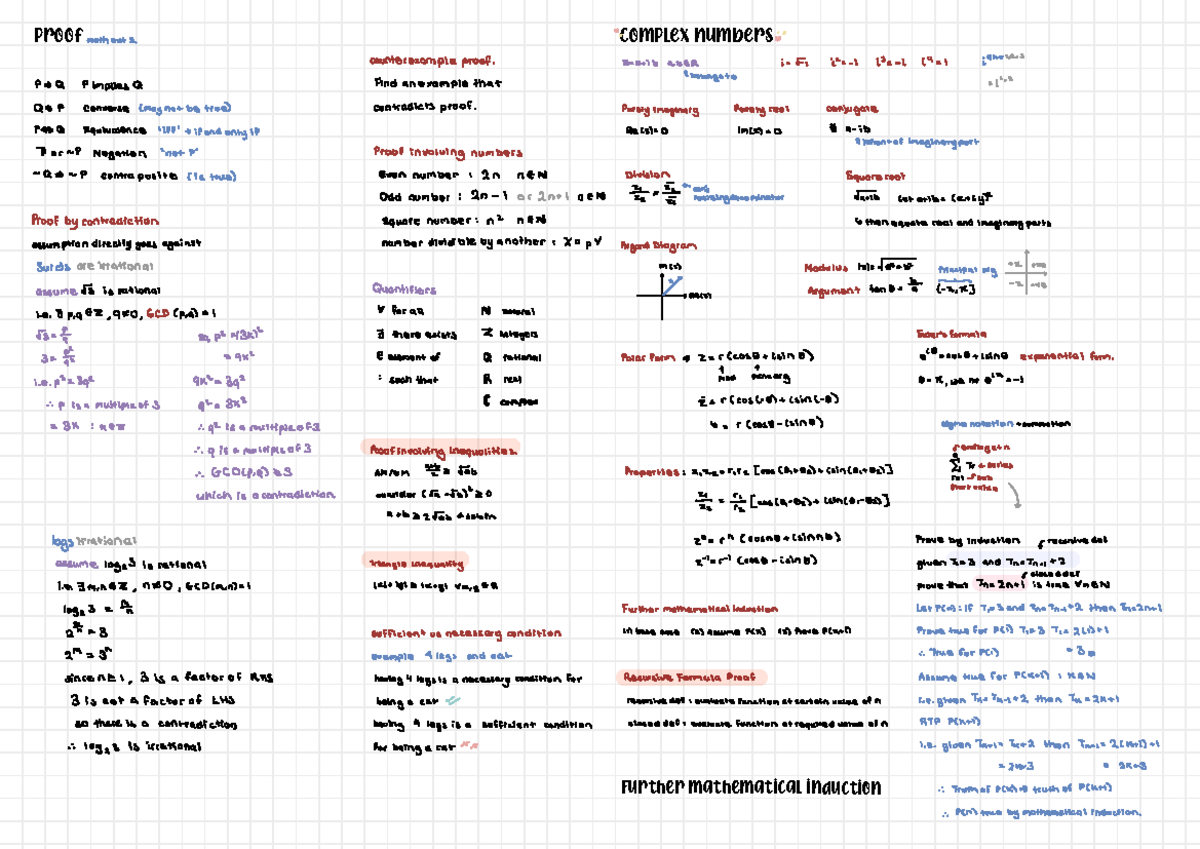 Proof math ext 2.
P⇒Q P implies Q
Q⇒P Converse (may not be true)
P⇔Q Equivalence "IFF" → if and only if
Negation "not P"
~Q⇒~P contrapositive (is true)
Proof by contradiction
assumption directly goes against
Surds are irrational
assume √3 is rational
i.e. ∃ p,q ∈ Z, q≠0, GCD (p,q) = 1
√3 = p/q
3 = p²/q²
i.e. p² = 3q²
∴ p is a multiple of 3
= 3k : k∈Z
p² = (3k)²
= 9k²
9k² = 3q²
q² = 3k²
∴ q² is a multiple of 3
∴ q is a multiple of 3
∴ GCD(p,q) ≥ 3
which is a contradiction
logs irrational
assume log₂3 is rational
i.e ∃ m,n ∈ Z, n≠0, GCD(m,n)=1
log₂3 = m/n
2^(m/n) = 3
2^m = 3^n
since n≥1, 3 is a factor of RHS
3 is not a factor of LHS
so there is a contradiction
∴ log₂3 is irrational
counterexample proof.
Find an example that
contradicts proof.
Proof involving numbers
Even number : 2n n∈N
Odd number : 2n-1 or 2n+1 n∈N
Square number : n² n∈N
number divisible by another : X = pY
Quantifiers
∀ for all N natural
∃ there exists Z integers
∈ element of Q rational
: such that R real
C complex
Proof involving inequalities.
AM/GM (a+b)/2 ≥ √ab
consider (√a-√b)² ≥ 0
a+b ≥ 2√ab
Triangle inequality
|x|+|y| ≥ |x+y|
sufficient vs necessary condition
example 4 legs and cat
having 4 legs is a necessary condition for
being a cat
having 4 legs is a sufficient condition
for being a cat
Complex numbers
z=a+ib a,b∈R i=√-1 i²=-1 i³=-i i⁴=1
Purely imaginary Purely real conjugate
Re(z)=0 Im(z)=0 a-ib
Division
z₁/z₂ × z̄₂/z̄₂
Square root
√a+ib let a+ib = (x+iy)²
↳ then equate real and imaginary parts
Argand Diagram
Im(z)
Re(z)
Modulus |z| = √a²+b² Principal arg
Argument tan θ = b/a (-π,π]
Polar Form → z = r(cosθ + isinθ)
mod
z̄ = r(cos(-θ) + isin(-θ)
= r(cosθ - isinθ)
Euler's formula
e^(iθ) = cosθ + isinθ exponential form.
θ = π, e^(iπ) = -1
Properties : z₁z₂ = r₁r₂ [cos(θ₁+θ₂) + isin(θ₁+θ₂)]
z₁/z₂ = r₁/r₂ [cos(θ₁-θ₂) + isin(θ₁-θ₂)]
zⁿ = rⁿ (cosnθ + isinnθ)
z⁻¹ = r⁻¹ (cosθ - isinθ)
sigma notation → summation
ending at n
Σ Tr → series
start value
Further mathematical induction
(1) base case (2) assume P(k) (3) prove P(k+1)
Recursive Formula Proof
recursive def : evaluate function at certain value of n
closed def : evaluate function at required value of n
Further mathematical induction
Prove by induction recursive def
given T₁=3 and Tn=Tn-1+2
closed def
prove that Tn=2n+1 is true ∀n∈N
Let P(n) : if T₁=3 and Tn=Tn-1+2 then Tn=2n+1
Prove true for P(1) T₁=3 = 2(1)+1
∴ True for P(1) = 3
Assume true for P(k) : k∈N
i.e. given Tk=Tk-1+2, then Tk=2k+1
RTP P(k+1)
i.e. given Tk+1=Tk+2 then Tk+1=2(k+1)+1
= 2k+3 = 2k+3
∴ Truth of P(k)⇒ truth of P(k+1)
∴ P(n) true by mathematical induction.